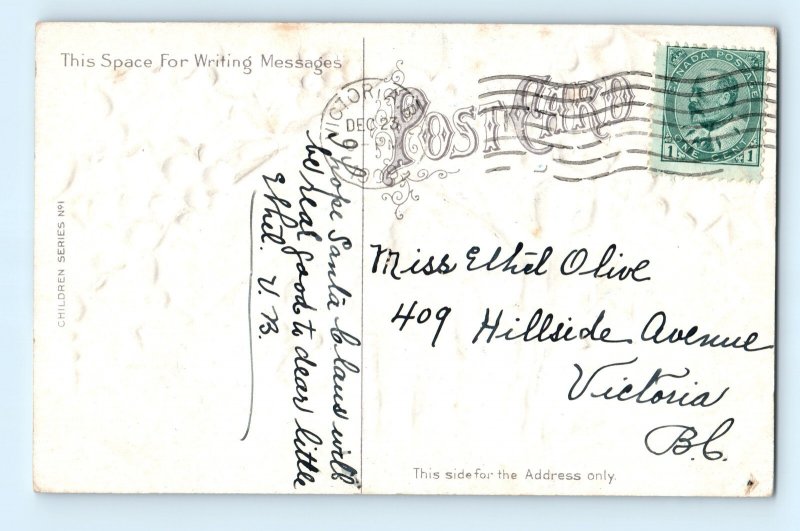 This Space For Writing Messages
POST CARD
VICTORIA
DEC 23
CANADA POSTAGE
1 ONE CENT 1
CHILDREN SERIES Nº1
I hope Santa Claus will
be real good to dear little
Ethel. V. B.
Miss Ethel Olive
409 Hillside Avenue
Victoria
B.C.
This side for the Address only.